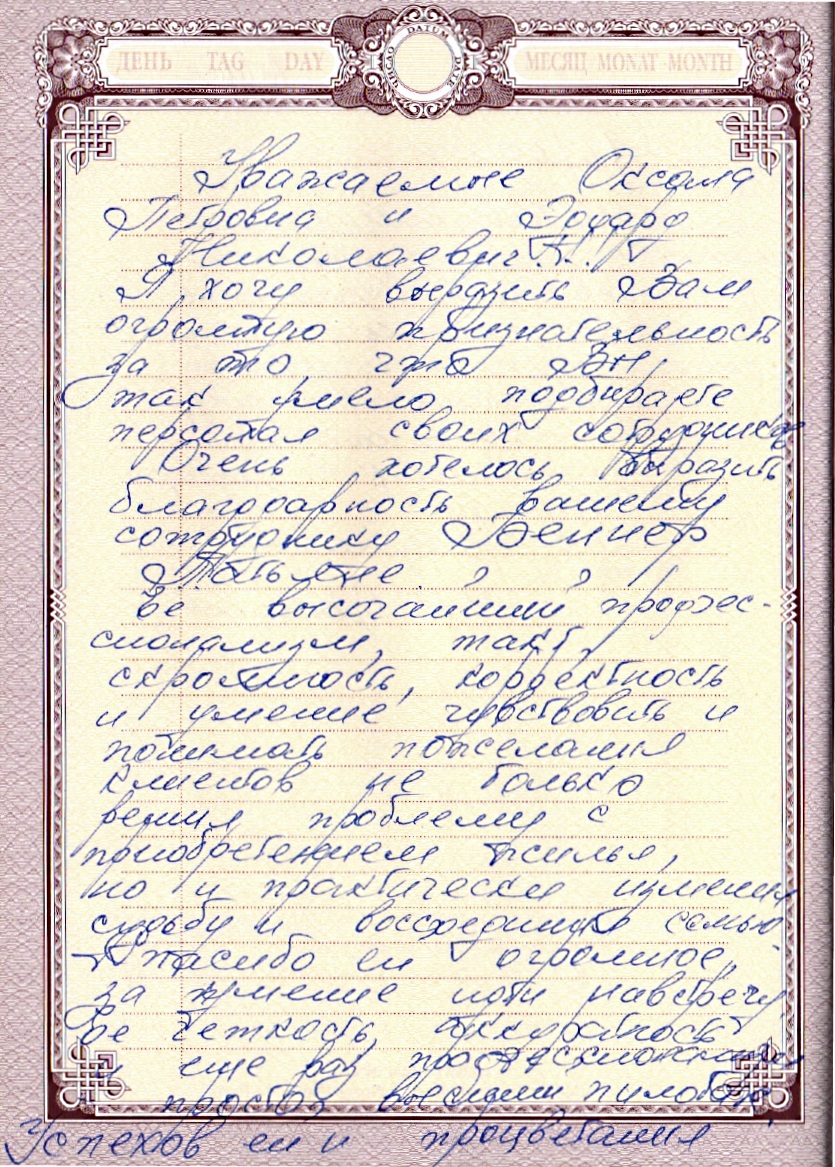 ДЕНЬ TAG DAY ЧИСЛО DATUM DATE МЕСЯЦ MONAT MONTH
Уважаемые Оксана
Петровна и Эдуард
Николаевич!!!
Я хочу выразить Вам
огромную признательность
за то что Вы,
так умело подбираете
персонал своих сотрудников
Очень хотелось выразить
благодарность вашему
сотруднику Веннер
Татьяне,
Ее высочайший профес-
сионализм, такт,
скромность, корректность
и умение чувствовать и
понимать пожелания
клиентов не только
решил проблему с
приобретением жилья,
но и практически изменил
судьбу и воссоединил семью
Спасибо ей огромное,
за умение идти навстречу,
ее четкость, аккуратность
и еще раз профессионализм
просто высший пилотаж!
Успехов ей и процветания